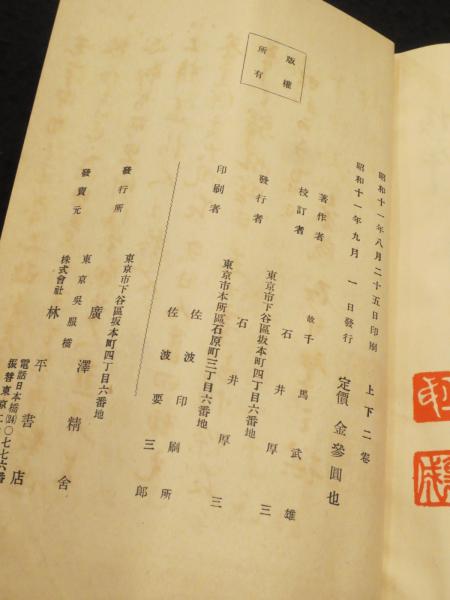 昭和十一年八月二十五日印刷
昭和十一年九月一日發行
上下二卷
定價金參圓也
著作者 故千馬武雄
校訂者 石井厚三
東京市下谷區坂本町四丁目六番地
發行者 石井厚三
東京市本所區石原町三丁目六番地
印刷者 佐波印刷所
佐波要三郎
東京市下谷區坂本町四丁目六番地
發行所 廣澤精舍
東京吳服橋
發賣元 株式會社 林平書店
電話日本橋(24)〇七七六番
振替東京
版權
所有